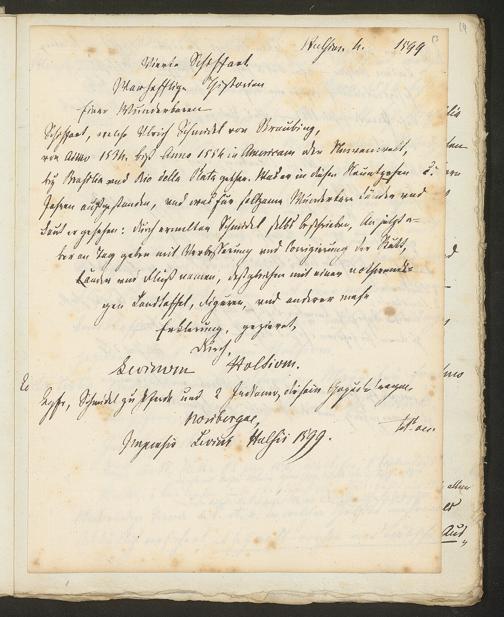 Hulsius 4. 1599
14
Vierte Schiffart
Warhafftige Historien
Einer Wunderbaren
Schiffart, welche Ulrich Schmidel von Straubing,
von Anno 1534. biß Anno 1554 in Americam oder Neuwewelt,
bey Brasilia und Rio della Plata gethan. Was er in diesen Neuntzehen
Jahren außgestanden, und was für seltzame Wunderbare Länder und
Leut er gesehen: durch ermelten Schmidel selbst beschrieben, An jetzt a-
ber an Tag geben mit Verbesserung und Corrigierung der Stätt,
Länder und Fluß namen, deßgleichen mit einer nothwendi-
gen Landtaffel, Figuren, und anderer mehr
Erklerung, gezieret,
Durch,
Levinum Hulsium.
Schmidel zu Pferde und 2 Indianer,
Noribergae,
Impensis Levini Hulsii 1599.